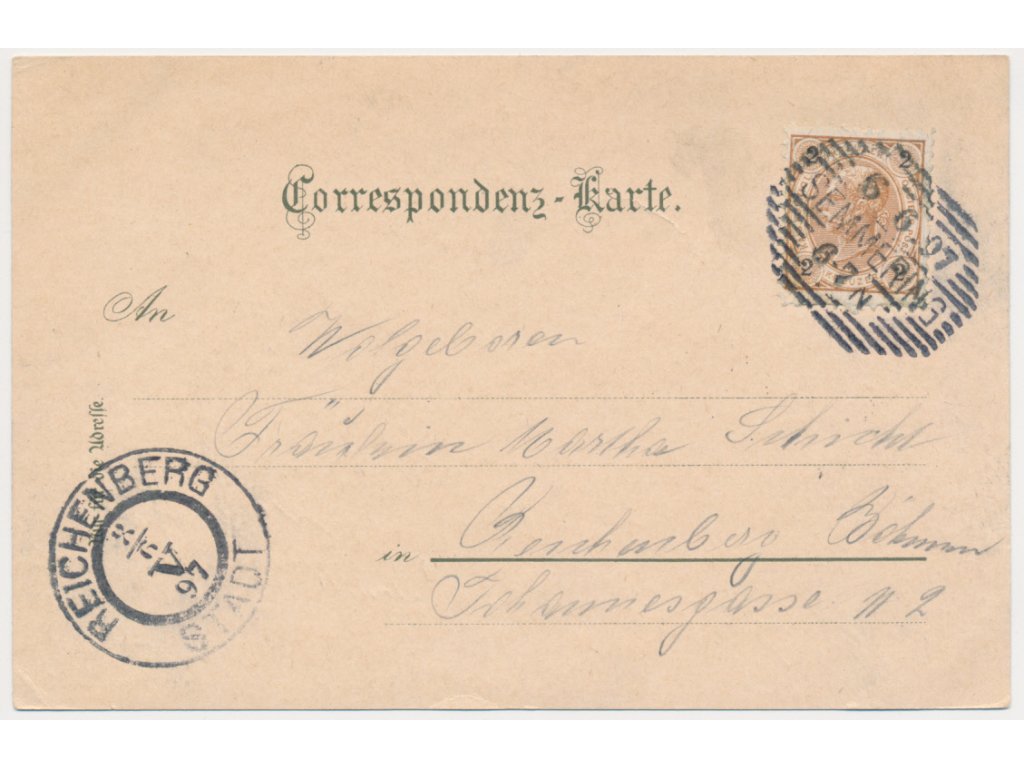 Correspondenz-Karte.
2 2
2 2
6 6 97
SEMMERING
6-7 N
An
Wolgeboren
Fräulein Martha Schicht
in Reichenberg Böhmen
Johannesgasse N 2
Adresse.
REICHENBERG
97
STADT